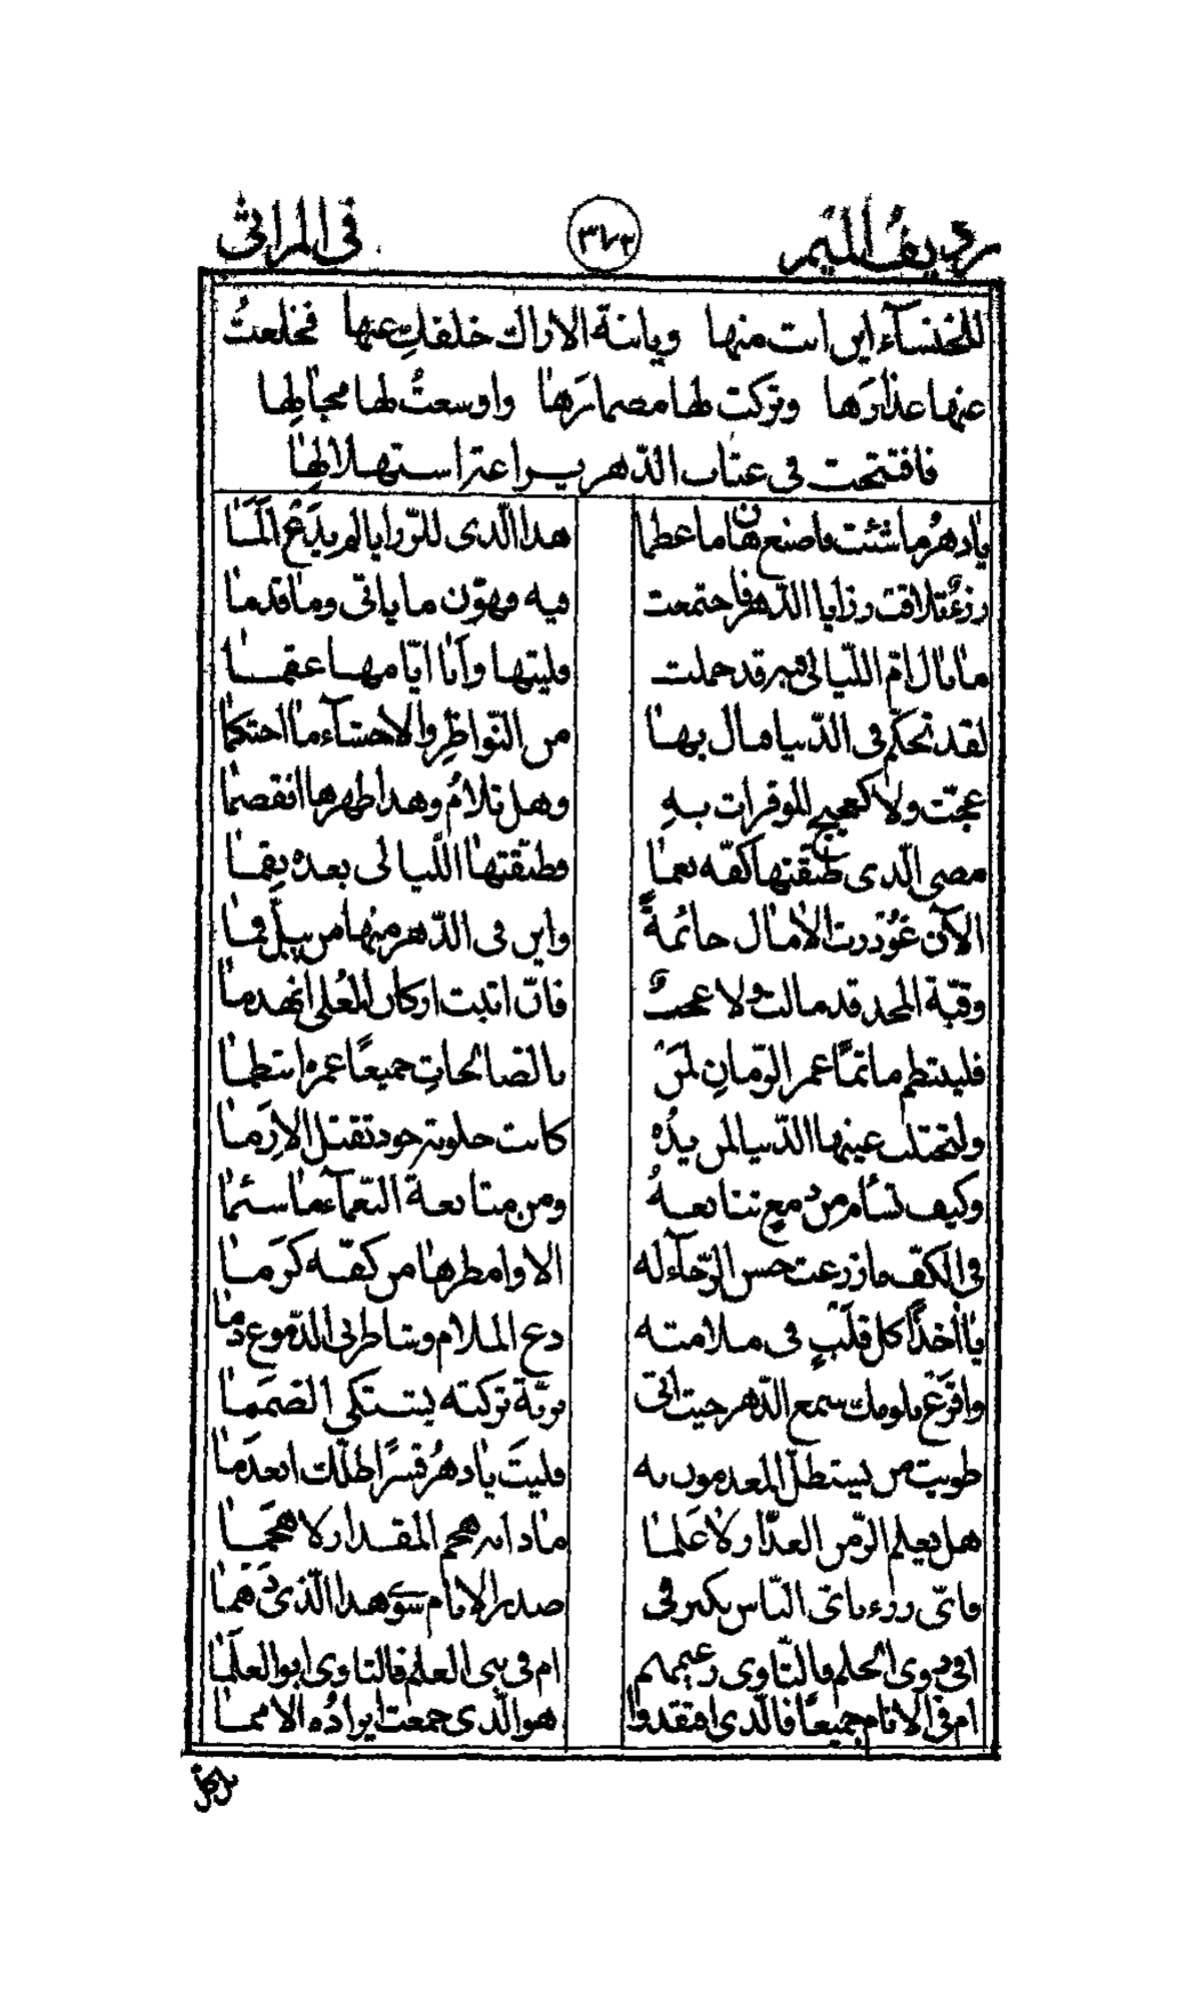 رديف الميم ٣٧٢ في المراثي
للخنساء اين انت منها ويابنة الاراك خلفك عنها فخلعتُ
عنها عذارَها وتركت لها مضمارَها واوسعتُ لها مجالها
فافتتحت في عتاب الدّهر براعة استهلالها
يا دهرُ ما شئت فاصنع هان ما عظما هذا الّذي للرّزايا لم يدَعْ ألَمَا
رزءٌ تلاقت رزايا الدّهر فاجتمعت فيه فهوّن ما ياتي وما قدما
ما بال امّ اللّيالي فيه قد حملت فليتها وأبا ايّامها عقما
لقد تحكّم في الدّنيا فمال بها من النّواظرِ والاحشاء ما احتكما
عجّت ولا كعجيج الموقرات بهِ وهل تلامُ وهذا ظهرها انفصما
مضى الّذي طبّقتها كفّه نعما فطبّقتها اللّيالي بعده نِقما
الآن غُودرت الآمال حائمةً واين في الدّهر منها من يبلّ فما
وقبّة المجد قد مالت ولا عجبٌ فانّ اثبت اركان العُلى انهدما
فلينتظم ماتمًا عمر الزّمانِ لمنْ بالصّالحاتِ جميعًا عمره انتظما
ولتحتلب عينها الدّنيا لمن يدُه كانت حلوبته جود تقتل الازما
وكيف تسأم من دمعٍ تتابعهُ ومن متابعة النّعماء ما سئما
في الكفّ ما زرعت حسن الرّجاء له الا وامطرها من كفّه كرَما
يا آخذًا كل قلبٍ في ملامته دع الملام وشاطرني الدّموع دما
واقرَعْ بلومك سمع الدّهر حيث اتى برزءة تركته يشتكي الصّمما
طويت من يستظلّ المعدمون به فليتَ يا دهرُ قسرًا ظلّك انعدما
هل يعلم الزّمن الغدّار لا عَلما ماذا به هجم المقدار لا هجَما
فايّ رزء باتّى النّاس يكبر في صدر الانام سوى هذا الّذي دهَما
افي ذوي الحلم فالثّاوي زعيمهم ام في بني العلم فالثاوي ابو العلَما
ام في الانام جميعًا فالّذي افتقدوا هو الّذي جمعت ابرادُه الامما